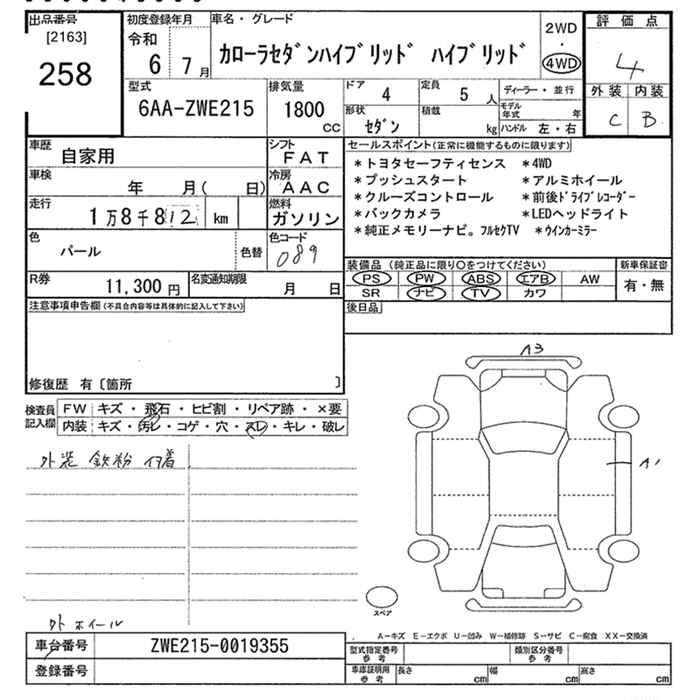 出品番号
[2163]
258
初度登録年月
令和
6 7月
車名・グレード
カローラセダンハイブリッド ハイブリッド
2WD
・
4WD
評価点
4
外装 内装
C B
型式
6AA-ZWE215
排気量
1800
CC
ドア
4
定員
5 人
形状
セダン
積載
kg
ディーラー・並行
モデル年式 年
ハンドル 左・右
車歴
自家用
シフト
FAT
車検
年 月( 日)
冷房
AAC
走行
1万8千812 km
燃料
ガソリン
色
パール
色替
色コード
089
R券
11,300 円
名変通知期限
月 日
セールスポイント(正常に機能するものに限ります)
*トヨタセーフティセンス *4WD
*プッシュスタート *アルミホイール
*クルーズコントロール *前後ドライブレコーダー
*バックカメラ *LEDヘッドライト
*純正メモリーナビ。フルセグTV *ウインカーミラー
装備品(純正品に限り○をつけてください)
PS PW ABS エアB AW
SR ナビ TV カワ
新車保証書
有・無
後日品
注意事項申告欄(不具合内容等は具体的に記入して下さい)
修復歴 有〔箇所 〕
検査員記入欄
FW キズ・飛石・ヒビ割・リペア跡・×要
内装 キズ・汚レ・コゲ・穴・スレ・キレ・破レ
外装 鉄粉 付着
外 ホイール
A3
A1
スペア
A-キズ E-エクボ U-凹み W-補修跡 S-サビ C-腐食 XX-交換済
車台番号
ZWE215-0019355
登録番号
型式指定番号
参考
類別区分番号
参考
車庫証明用
参考
長さ cm 幅 cm 高さ cm